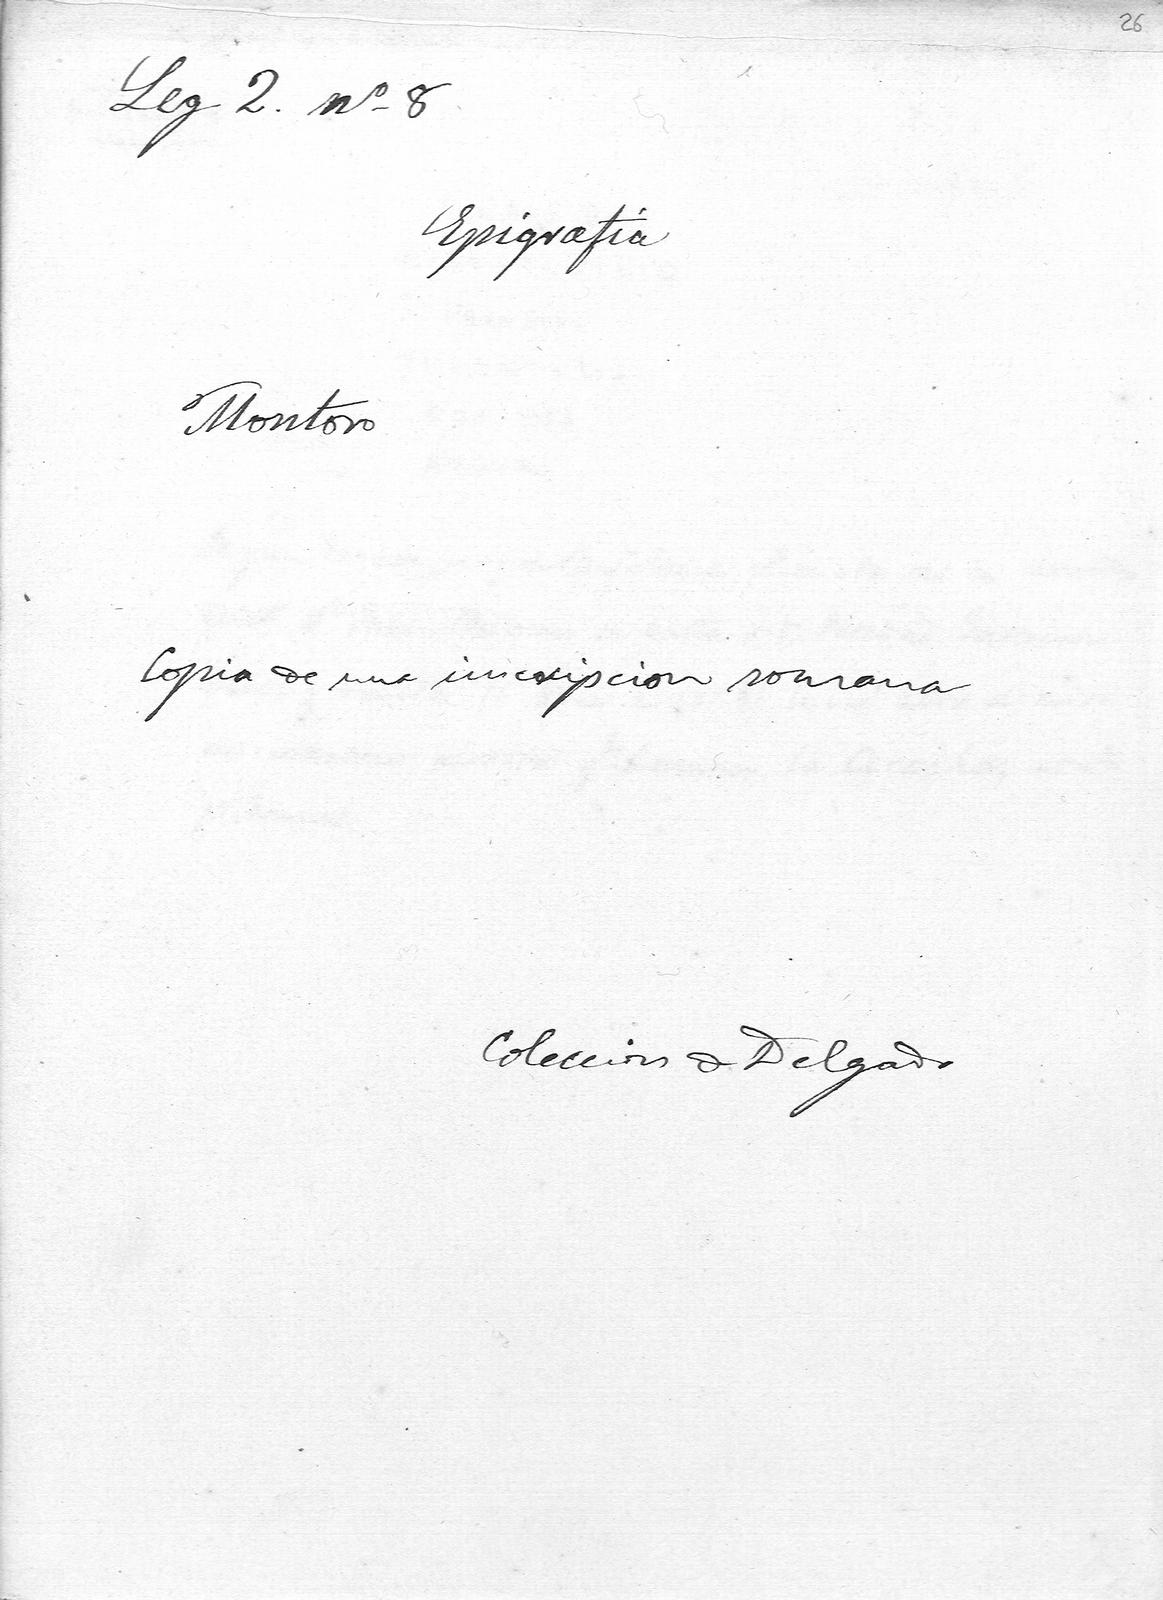 26
Leg 2. nº 8
Epigrafia
Montoro
Copia de una inscripcion romana
Coleccion de Delgado